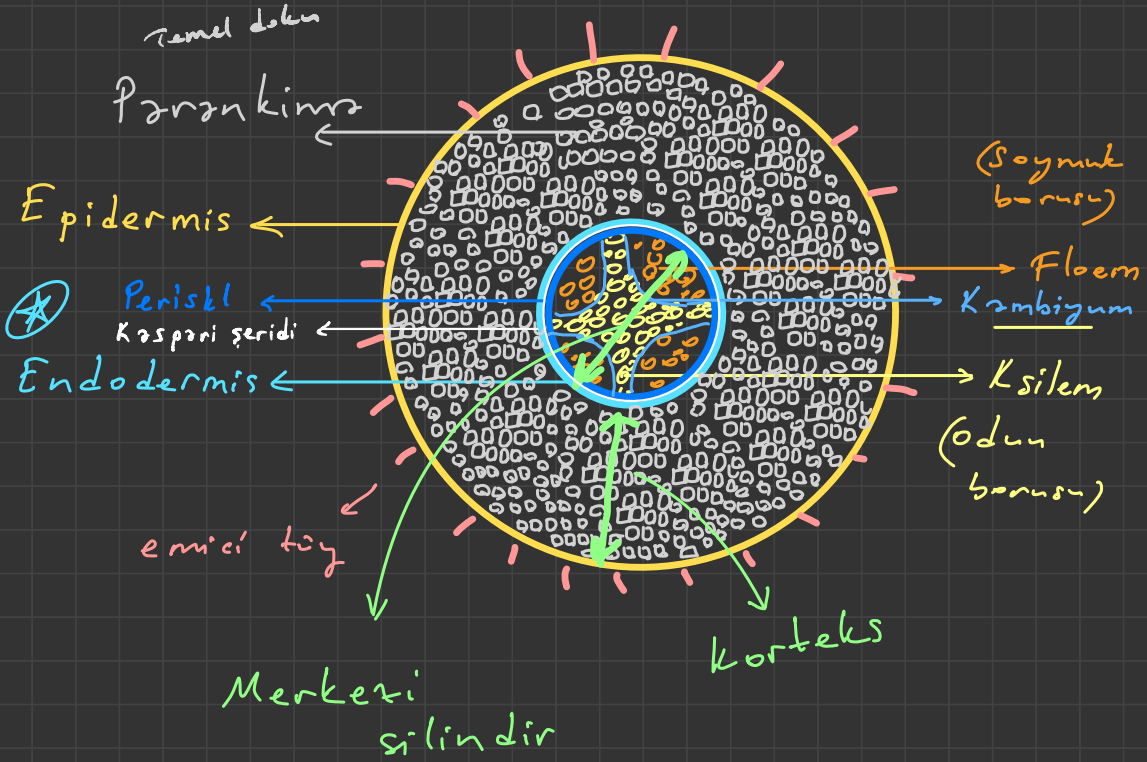 Temel doku
Parankima
Epidermis
Periskl
Kaspari şeridi
Endodermis
emici tüy
Merkezi
silindir
Korteks
(Soymuk
borusu)
Floem
Kambiyum
Ksilem
(odun
borusu)